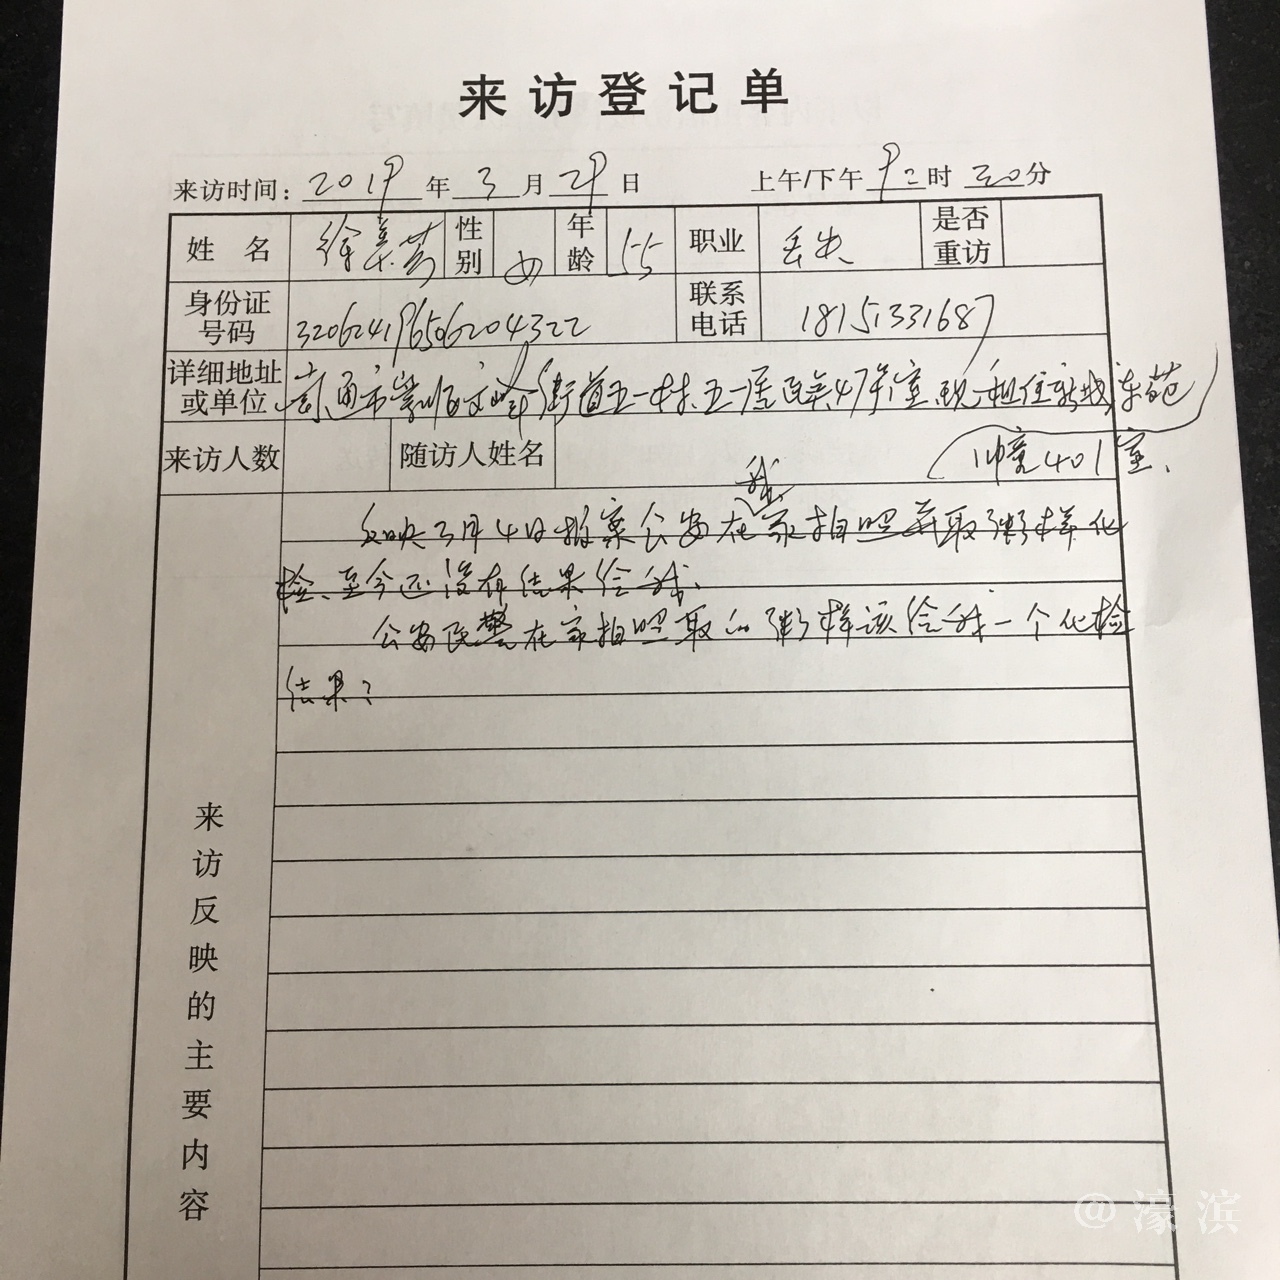 来访登记单
来访时间: 2019 年 3 月 29 日 上午/下午 时 30 分
姓名 徐美芳 性别 女 年龄 55 职业 丢失 是否重访
身份证号码 320624196506204322 联系电话 18151331687
详细地址或单位 南通市崇川区文峰街道五一村五一居 47 室现租住新城东苑
401室、
来访人数 随访人姓名
我
反映3月4日报案公安在家拍照并取粥样化
检、至今还没有结果给我、
公安民警在家拍照取的粥样该给我一个化检
结果?
来访反映的主要内容
@濠滨